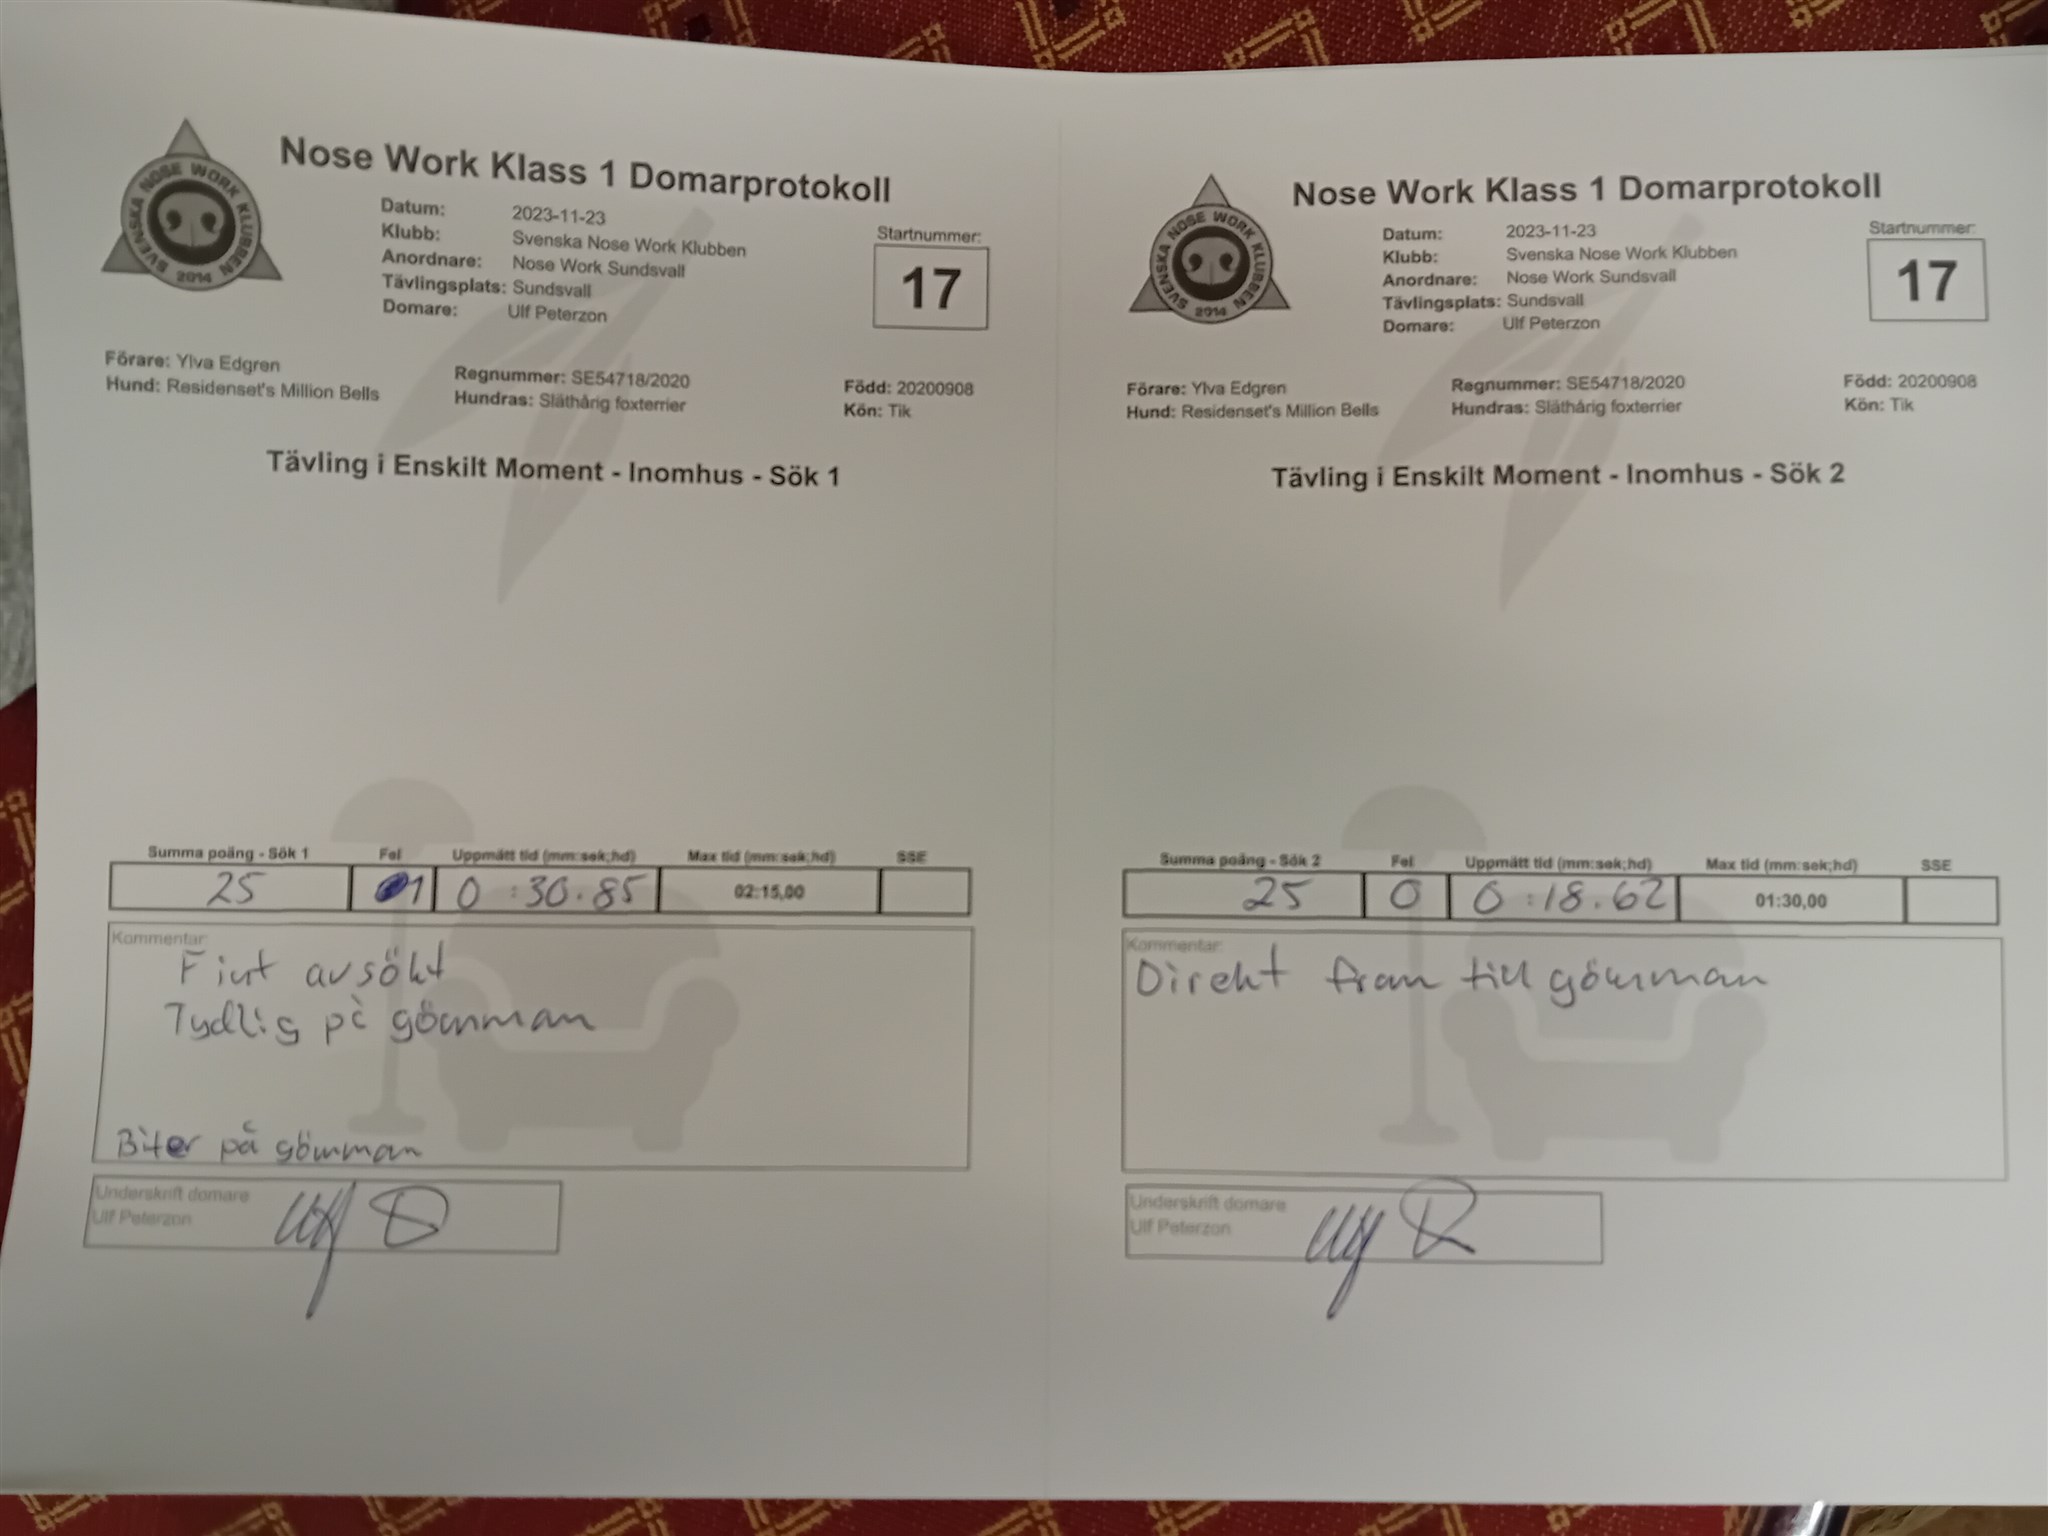 SVENSKA NOSE WORK KLUBBEN
2014
Nose Work Klass 1 Domarprotokoll
Datum: 2023-11-23
Klubb: Svenska Nose Work Klubben
Anordnare: Nose Work Sundsvall
Tävlingsplats: Sundsvall
Domare: Ulf Peterzon
Startnummer:
17
Förare: Ylva Edgren
Hund: Residenset's Million Bells
Regnummer: SE54718/2020
Hundras: Släthårig foxterrier
Född: 20200908
Kön: Tik
Tävling i Enskilt Moment - Inomhus - Sök 1
Summa poäng - Sök 1 Fel Uppmätt tid (mm:sek;hd) Max tid (mm:sek;hd) SSE
25 1 0 :30.85 02:15,00
Kommentar:
Fint avsökt
Tydlig på gömman
Biter på gömman
Underskrift domare
Ulf Peterzon
SVENSKA NOSE WORK KLUBBEN
2014
Nose Work Klass 1 Domarprotokoll
Datum: 2023-11-23
Klubb: Svenska Nose Work Klubben
Anordnare: Nose Work Sundsvall
Tävlingsplats: Sundsvall
Domare: Ulf Peterzon
Startnummer:
17
Förare: Ylva Edgren
Hund: Residenset's Million Bells
Regnummer: SE54718/2020
Hundras: Släthårig foxterrier
Född: 20200908
Kön: Tik
Tävling i Enskilt Moment - Inomhus - Sök 2
Summa poäng - Sök 2 Fel Uppmätt tid (mm:sek;hd) Max tid (mm:sek;hd) SSE
25 0 0 :18.62 01:30,00
Kommentar:
Direkt fram till gömman
Underskrift domare
Ulf Peterzon